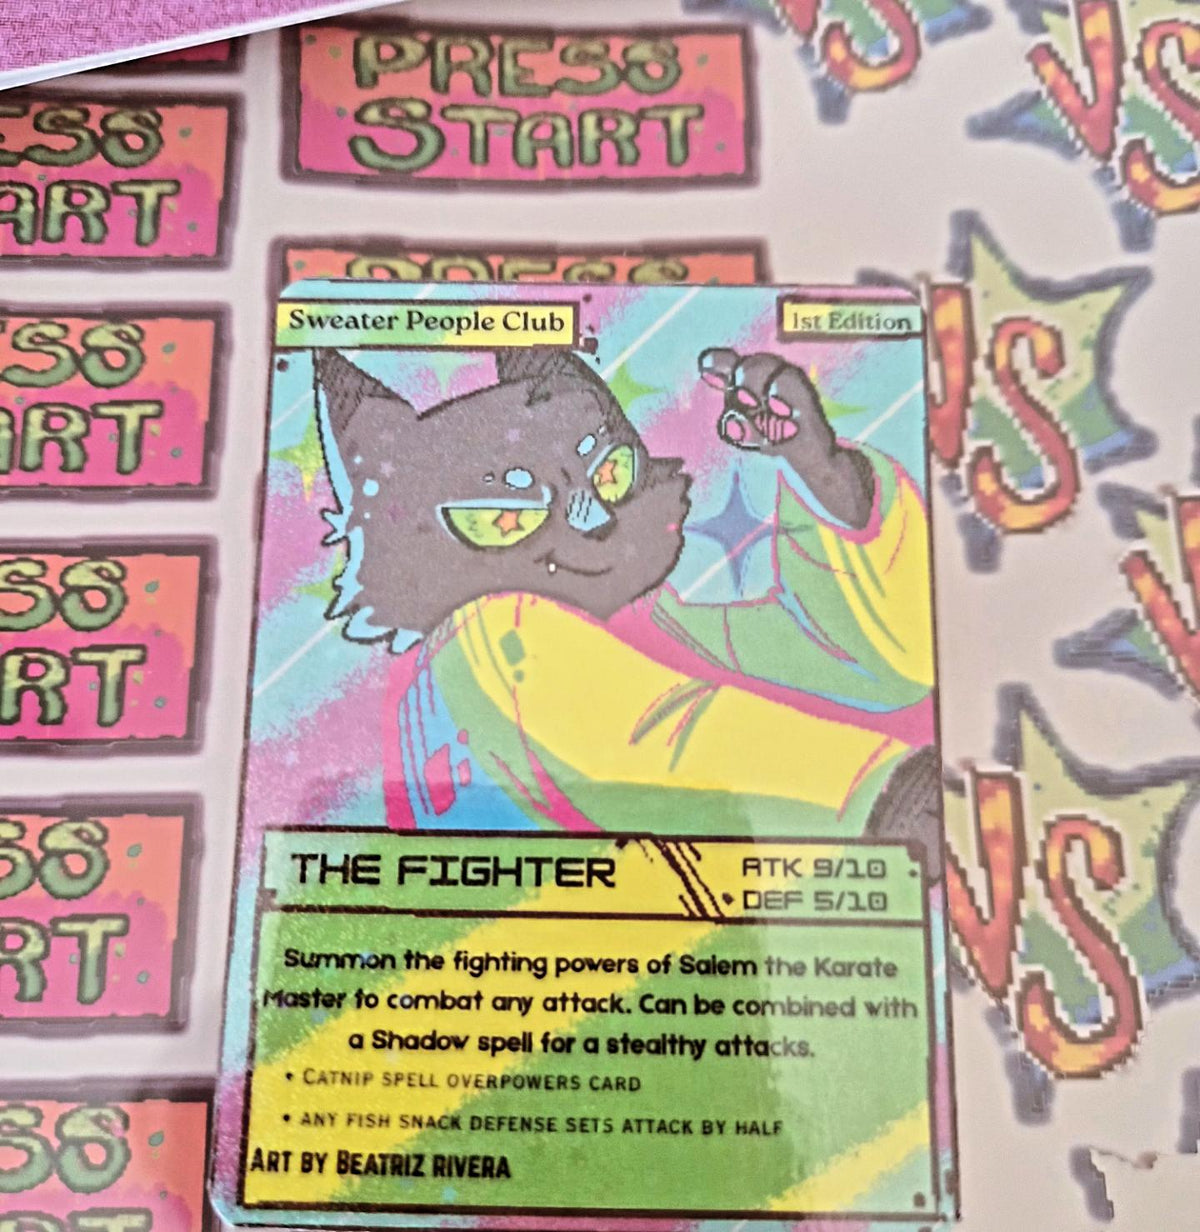 PRESS
START
ESS
ART
PRESS
SS
ART
SS
RT
SS
RT
SS
RT
VS
VS
VS
VS
VS
Sweater People Club
1st Edition
THE FIGHTER
ATK 9/10
DEF 5/10
Summon the fighting powers of Salem the Karate
Master to combat any attack. Can be combined with
a Shadow spell for a stealthy attacks.
• CATNIP SPELL OVERPOWERS CARD
• ANY FISH SNACK DEFENSE SETS ATTACK BY HALF
ART BY BEATRIZ RIVERA